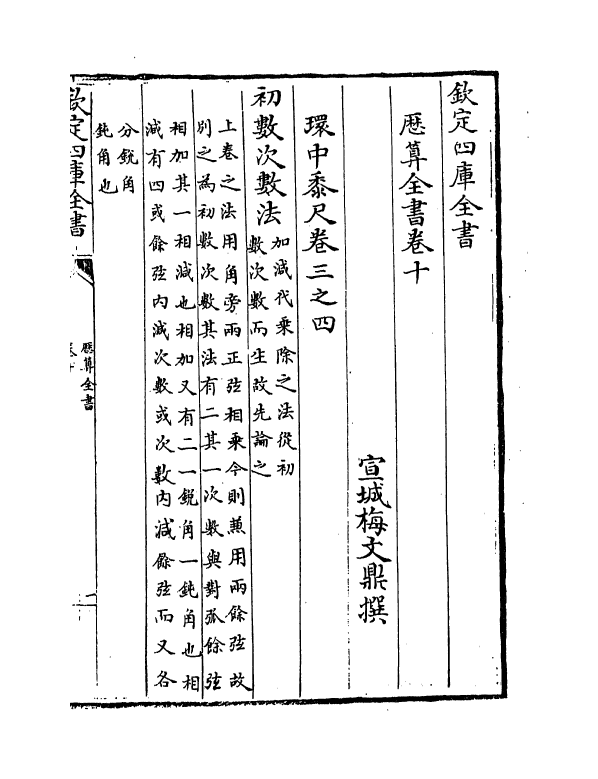 欽定四庫全書
厯算全書卷十
宣城梅文鼎撰
環中黍尺卷三之四
初數次數法
加減代乗除之法從初
數次數而生故先論之
上卷之法用角旁兩正弦相乗今則兼用兩餘弦故
別之為初數次數其法有二其一次數與對弧餘弦
相加其一相減也相加又有二一銳角一鈍角也相
減有四或餘弦内減次數或次數内減餘弦而又各
分銳角
鈍角也
欽定四庫全書
厯算全書